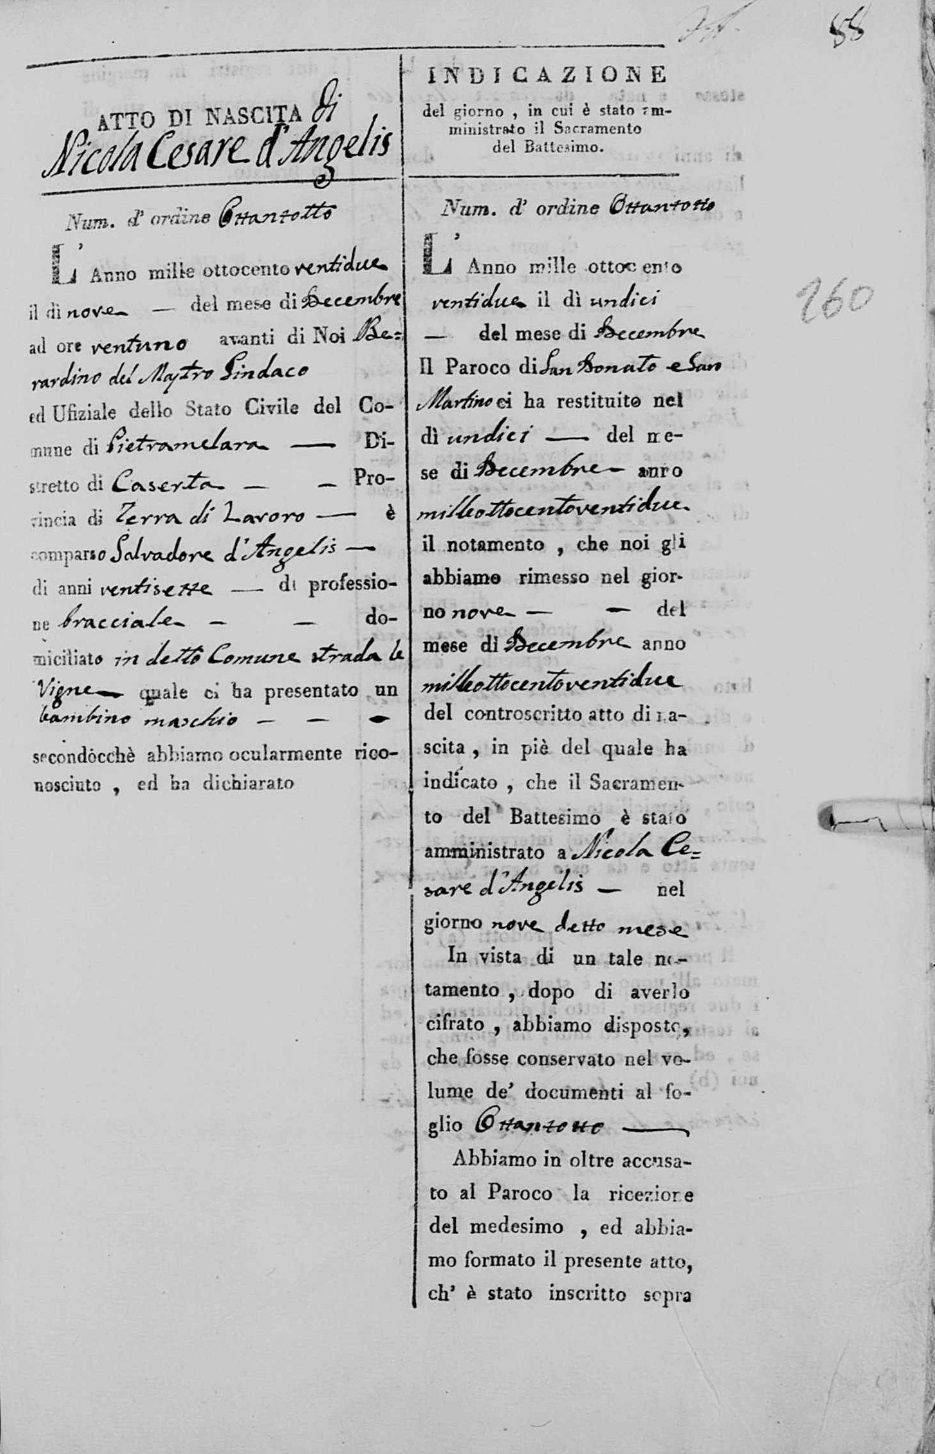 88
ATTO DI NASCITA di
Nicola Cesare d'Angelis
Num. d' ordine Ottantotto
L' Anno mille ottocento ventidue
il dì nove — del mese di Decembre
ad ore ventuno avanti di Noi Be=
rardino del Mastro Sindaco
ed Ufiziale dello Stato Civile del Co-
mune di Pietramelara — Di-
stretto di Caserta — — Pro-
vincia di Terra di Lavoro — è
comparso Salvadore d'Angelis —
di anni ventisette — di professio-
ne bracciale — — do-
miciliato in detto Comune strada le
Vigne — quale ci ha presentato un
bambino maschio — — —
secondocchè abbiamo ocularmente rico-
nosciuto , ed ha dichiarato
INDICAZIONE
del giorno , in cui è stato am-
ministrato il Sacramento
del Battesimo.
Num. d' ordine Ottantotto
L' Anno mille ottocento
ventidue il dì undici
— del mese di Decembre
Il Paroco di San Donato e San
Martino ci ha restituito nel
dì undici — del me-
se di Decembre — anno
milleottocentoventidue
il notamento , che noi gli
abbiamo rimesso nel gior-
no nove — — del
mese di Decembre anno
milleottocentoventidue
del controscritto atto di na-
scita , in piè del quale ha
indicato , che il Sacramen-
to del Battesimo è stato
amministrato a Nicola Ce=
sare d'Angelis — nel
giorno nove detto mese
In vista di un tale no-
tamento , dopo di averlo
cifrato , abbiamo disposto,
che fosse conservato nel vo-
lume de' documenti al fo-
glio Ottantotto —
Abbiamo in oltre accusa-
to al Paroco la ricezione
del medesimo , ed abbia-
mo formato il presente atto,
ch' è stato inscritto sopra
160